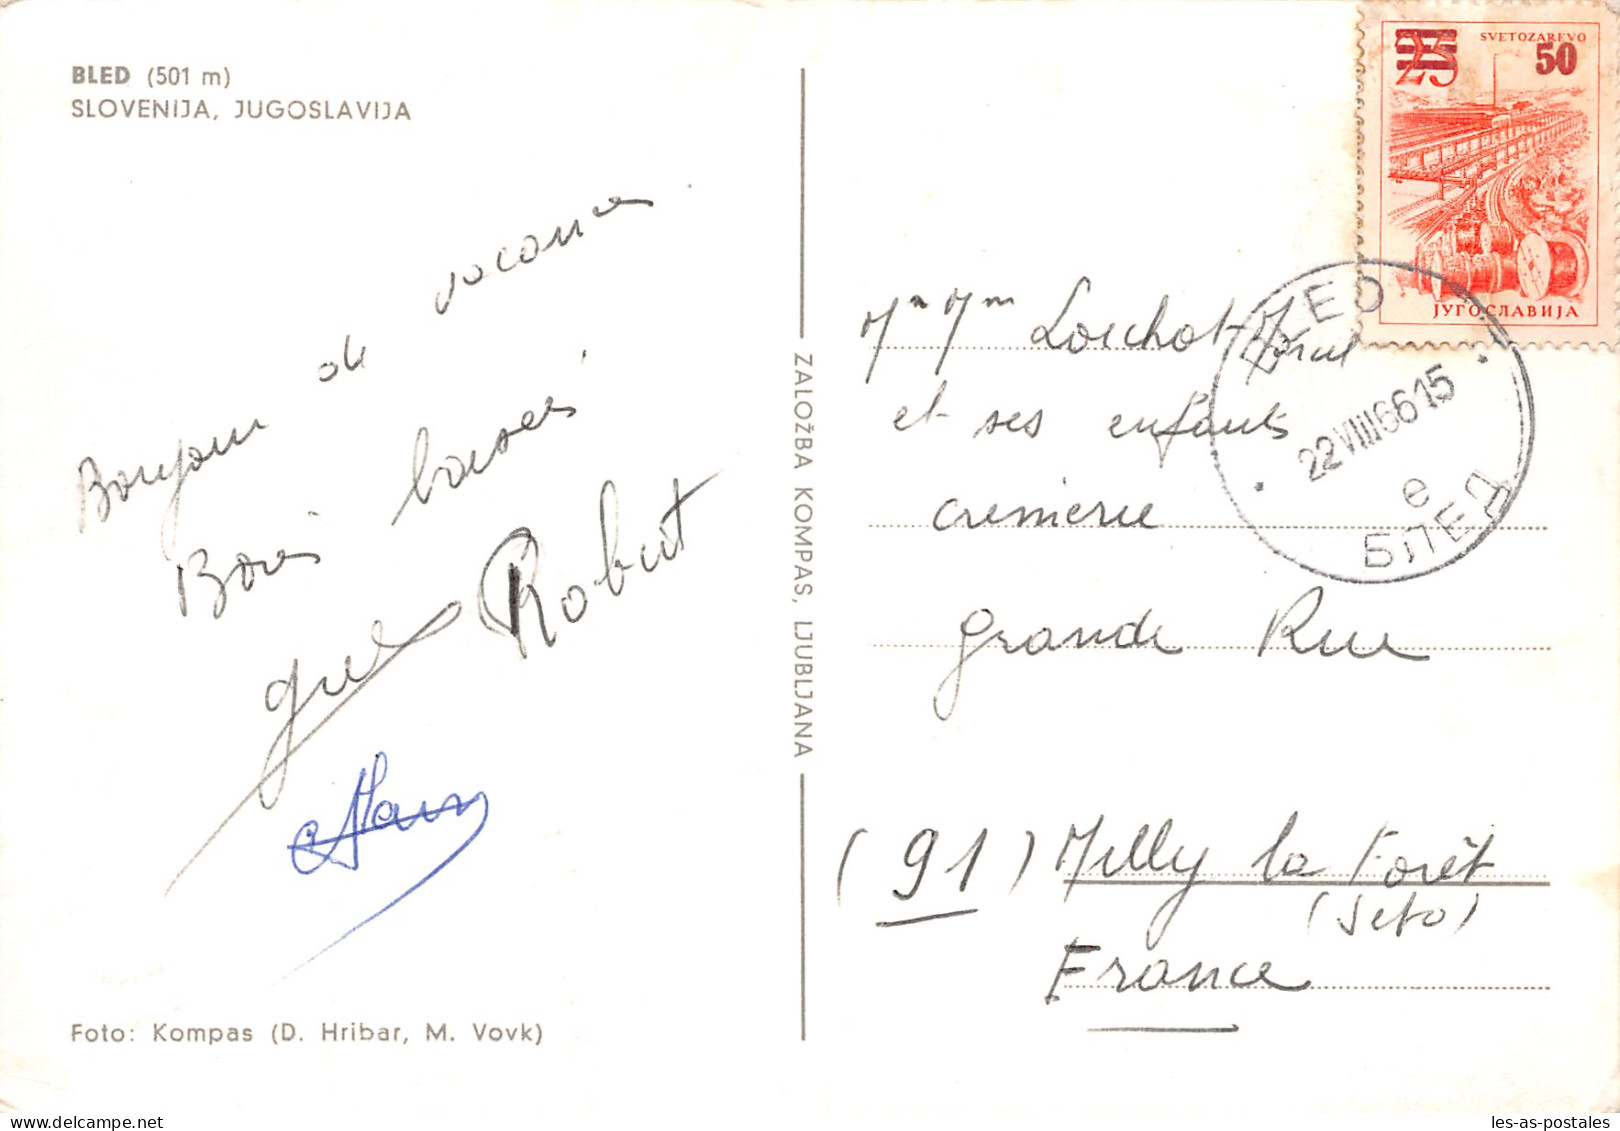 BLED (501 m)
SLOVENIJA, JUGOSLAVIJA
Bonjour de vacances
Bons baisers
Robert
Foto: Kompas (D. Hribar, M. Vovk)
ZALOŽBA KOMPAS, LJUBLJANA
SVETOZAREVO
25 50
ЈУГОСЛАВИЈА
BLED
22 VIII 66 15
e
БЛЕД
Mr Mme Loichot
et ses enfants
cremerie
grande Rue
(91) Milly la Forêt
(Seto)
France
les-as-postales